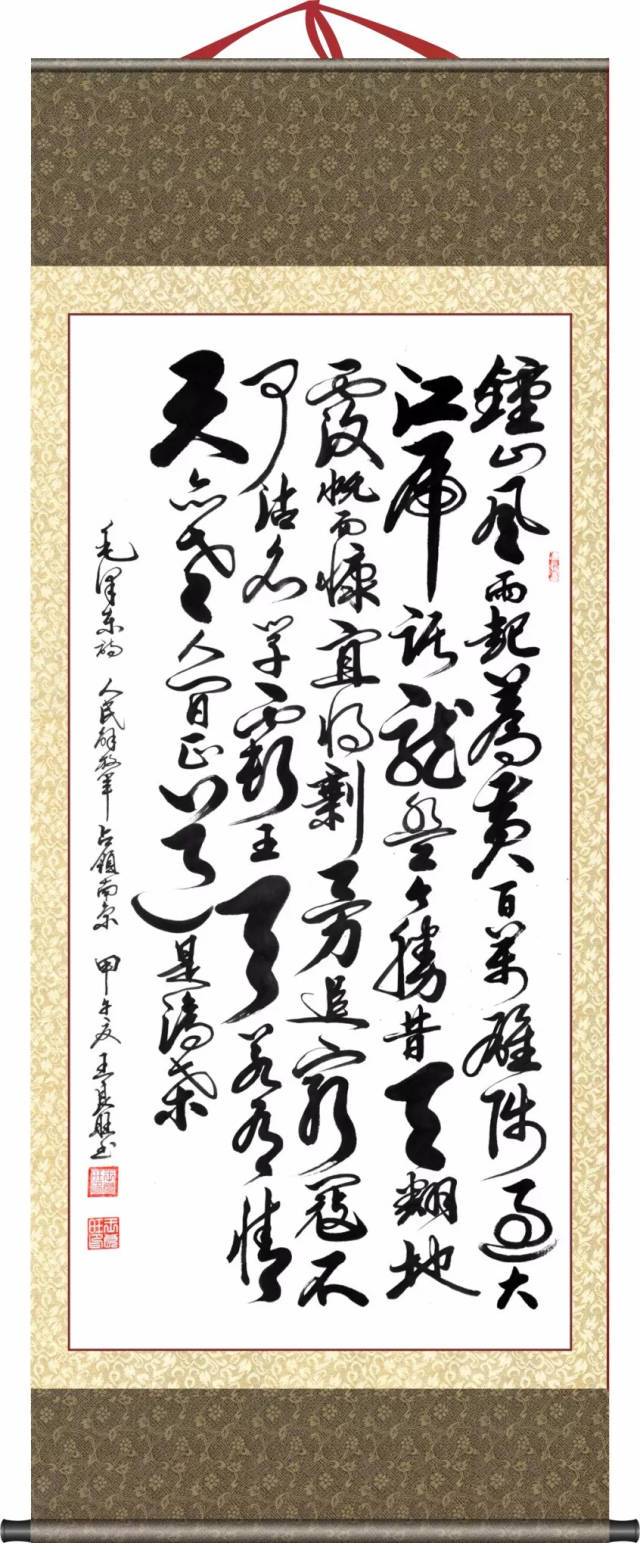 鐘山風雨起蒼黄百萬雄师過大
江虎踞龍盤今勝昔天翻地
覆慨而慷宜将剩勇追窮寇不
可沽名学霸王天若有情
天亦老人间正道是滄桑
毛澤东詩 人民解放军占領南京 甲午夏王良旺书